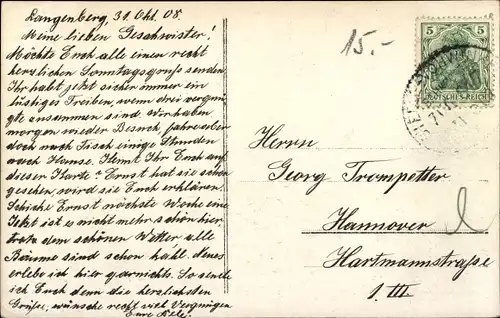 Langenberg, 31. Okt. 08.
Meine lieben Geschwister!
Möchte Euch alle einen recht
herzlichen Sonntagsgruß senden
Ihr habt jetzt sicher immer ein
lustiges Treiben, wenn drei vergnüg-
te zusammen sind. Wir haben
morgen wieder Besuch, fahren aber
doch nach Tisch einige Stunden
nach Hause. Kennt Ihr Euch auf
dieser Karte? Ernst hat sie schon
gesehen, wird sie Euch erklären.
Schicke Ernst nächste Woche eine
Jetzt ist es nicht mehr schön hier,
trotz dem schönen Wetter alle
Bäume sind schon kahl. Neues
erlebe ich hier garnichts. So sende
ich Euch denn die herzlichsten
Grüße, wünsche recht viel Vergnügen
Eure
15.-
5 5
DEUTSCHES REICH
Herrn
Georg Trompetter
Hannover
Hartmannstraße
1. III.